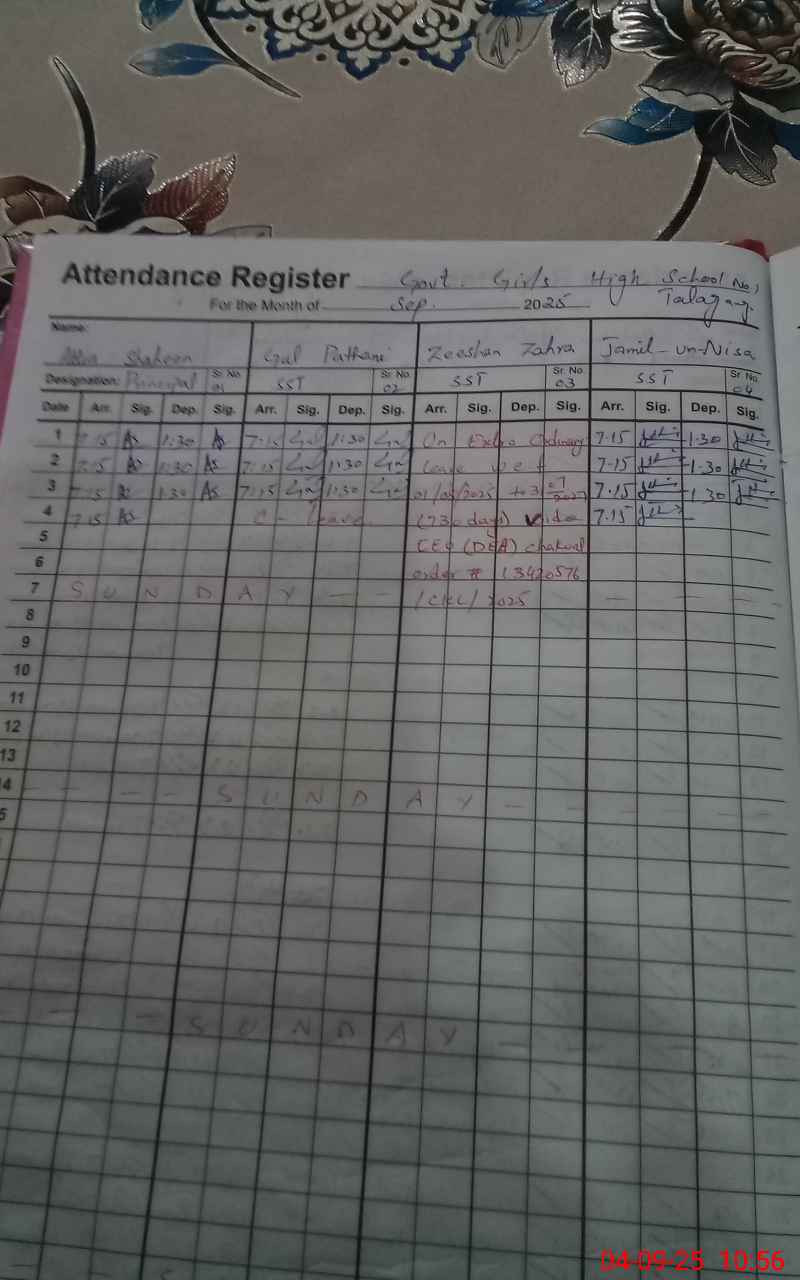 Attendance Register Govt. Girls High School No,
For the Month of Sep. 2025 Talagang.
Name:
Shaheen Gul Pathani Zeeshan Zahra Jamil-un-Nisa
Designation: Principal Sr. No. 01 SST Sr. No. 02 SST Sr. No. 03 SST Sr. No. 04
Date Arr. Sig. Dep. Sig. Arr. Sig. Dep. Sig. Arr. Sig. Dep. Sig. Arr. Sig. Dep. Sig.
1 7:15 AS 1:30 AS 7:15 1:30 On Extra Ordinary 7.15 1.30
2 7:15 AS 1:30 AS 7:15 1:30 Leave w e f 7.15 1.30
3 7:15 AS 1:30 AS 7:15 1:30 2025 to 31 07 2027 7.15 1.30
4 7:15 AS C - Leave. (730 days) vide 7.15
5 CEO (DEA) Chakwal
6 order # 13420576
7 S U N D A Y — — /CKL/2025 — — — —
8
9
10
11
12
13
4 — — — — S U N D A Y — — — —
5
— — — S U N D A Y — — —
04-09-25 10:56